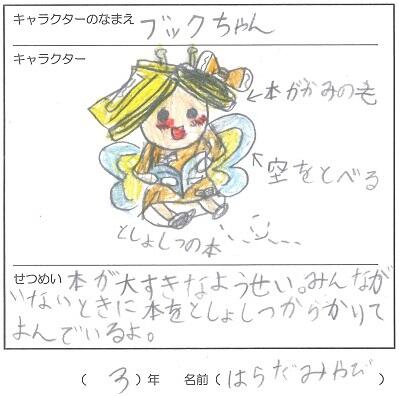 キャラクターのなまえ ブックちゃん
キャラクター
←本がかみの毛
↖空をとべる
としょしつの本
せつめい 本が大すきなようせい。みんなが
いないときに本をとしょしつからかりて
よんでいるよ。
(3)年 名前(はらだみやび)